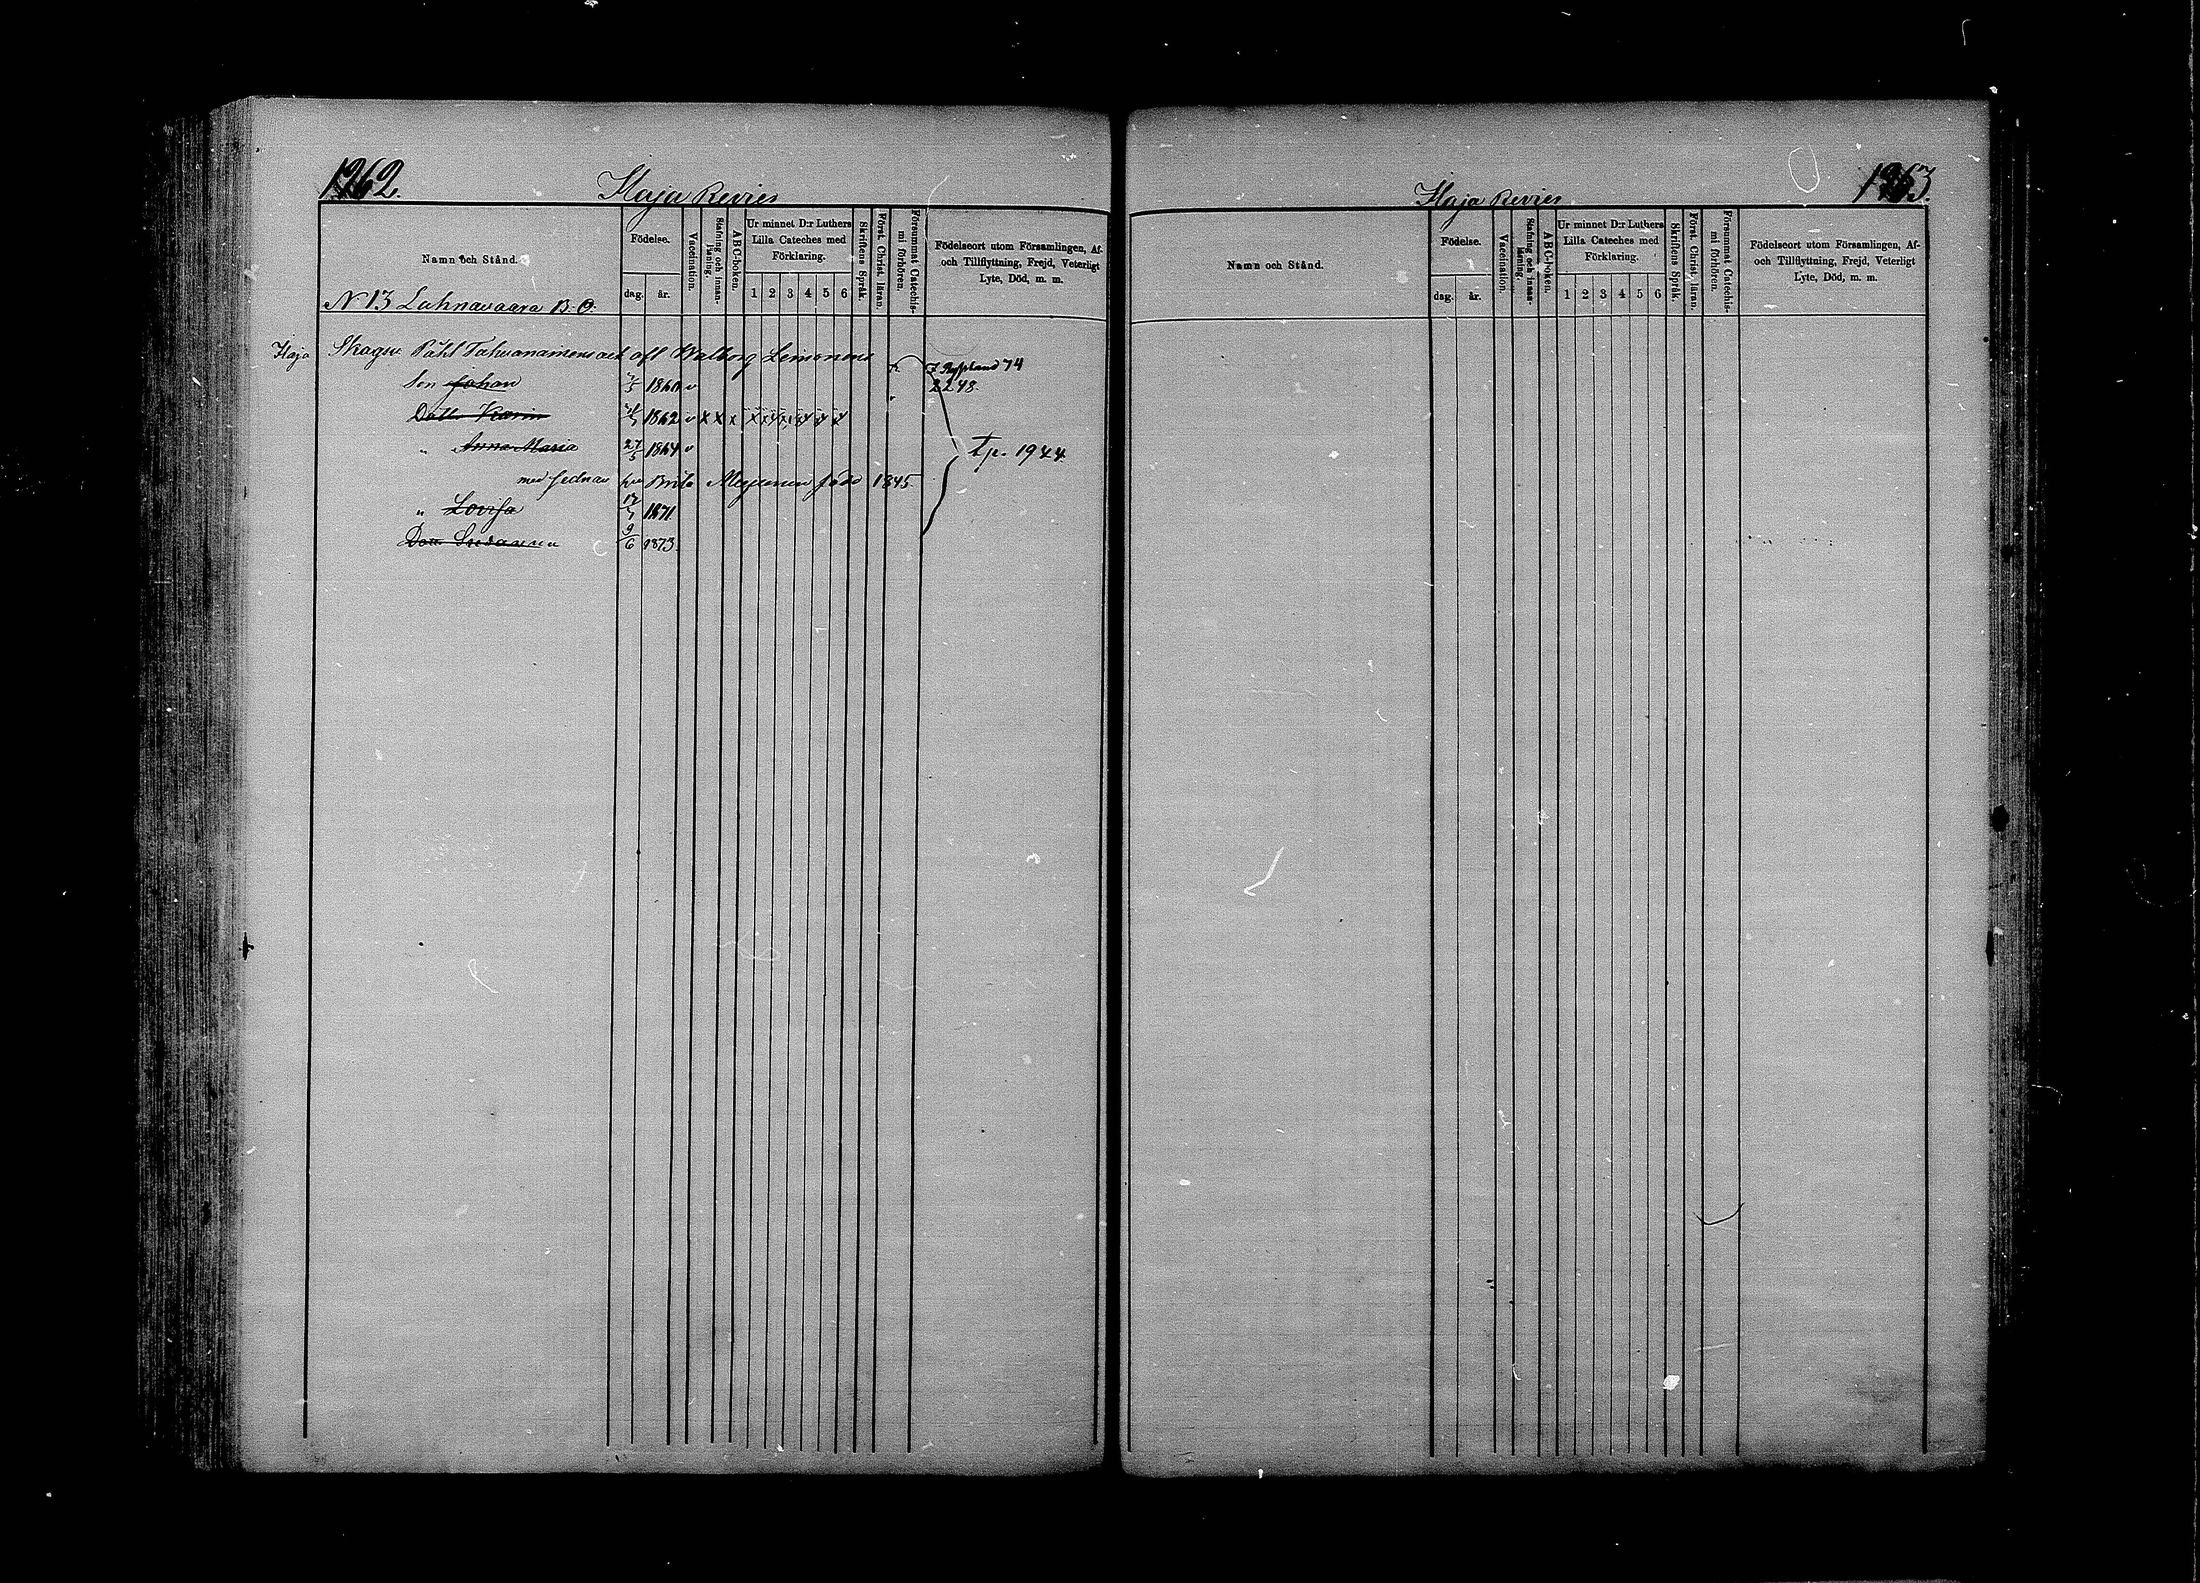 1262.
Ilaja Revier
Namn och Stånd.
Födelse.
dag.
år.
Vaccination.
Stafning och innanläsning.
ABC-boken.
Ur minnet D:r Luthers
Lilla Cateches med
Förklaring.
1 2 3 4 5 6
Skriftens Språk.
Först. Christ. läran.
Försummat Catechismi förhören.
Födelseort utom Församlingen, Af-
och Tillflyttning, Frejd, Veterligt
Lyte, Död, m. m.
N 13 Lahnavaara B. O.
Ilaja
Påhl Tahvanainens afl Walborg
Son Johan 1860 v
74
2248
Dott. Karin 1862 v x x x x x x x x x
" Anna Maria 27/5 1864 v
tp. 1944
med sednar Brita född 1845
" Lovisa 1871
Dott. Susanna 9/6 1873.
1263.
Ilaja Revier
Namn och Stånd.
Födelse.
dag.
år.
Vaccination.
Stafning och innanläsning.
ABC-boken.
Ur minnet D:r Luthers
Lilla Cateches med
Förklaring.
1 2 3 4 5 6
Skriftens Språk.
Först. Christ. läran.
Försummat Catechismi förhören.
Födelseort utom Församlingen, Af-
och Tillflyttning, Frejd, Veterligt
Lyte, Död, m. m.